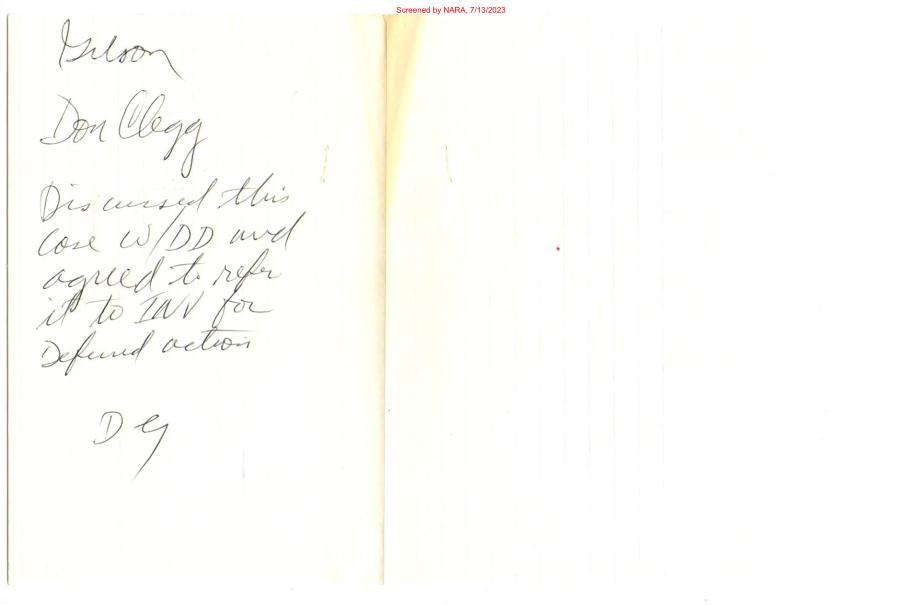 Screened by NARA, 7/13/2023
Don Clegg
Discussed this
case w/DD and
agreed to refer
it to INV for
action